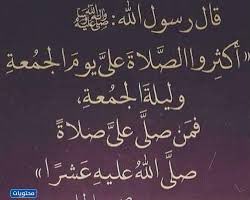 قال رسول الله: ﷺ
«أكثِروا الصَّلاةَ عليَّ يومَ الجمُعةِ
وليلةَ الجمُعةِ،
فمَن صلَّى عليَّ صلاةً
صلَّى اللهُ عليهِ عَشرًا»
محتويات